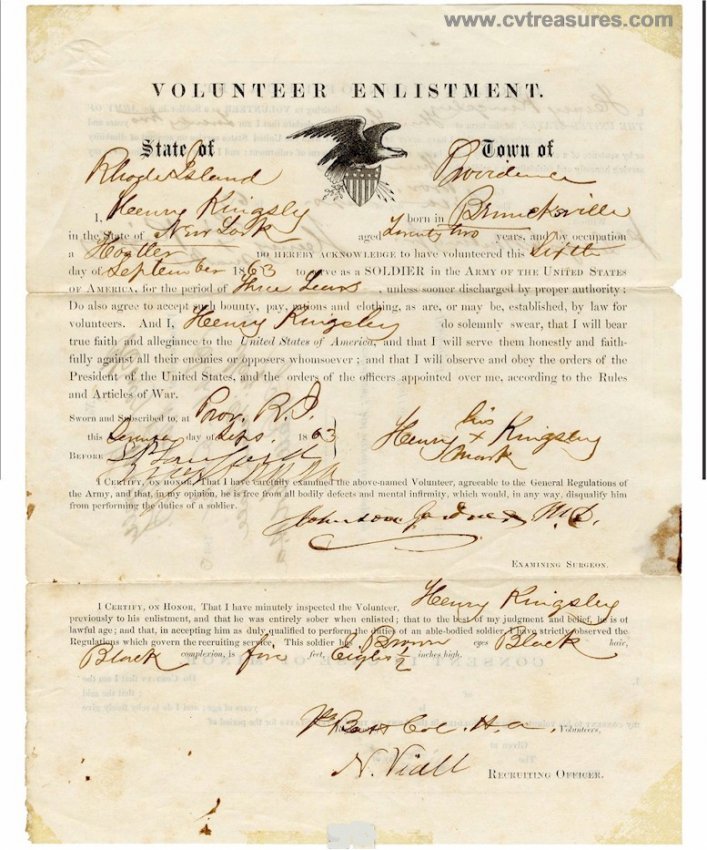 www.cvtreasures.com
VOLUNTEER ENLISTMENT.
State of Town of
Rhode Island Providence
I, Henry Kingsly born in
in the State of New York aged Twenty two years, and by occupation
a DO HEREBY ACKNOWLEDGE to have volunteered this Sixth
day of September 1863 to serve as a SOLDIER IN THE ARMY OF THE UNITED STATES
OF AMERICA, for the period of Three Years, unless sooner discharged by proper authority;
Do also agree to accept such bounty, pay, rations and clothing, as are, or may be, established, by law for
volunteers. And I, Henry Kingsley do solemnly swear, that I will bear
true faith and allegiance to the United States of America, and that I will serve them honestly and faith-
fully against all their enemies or opposers whomsoever; and that I will observe and obey the orders of the
President of the United States, and the orders of the officers appointed over me, according to the Rules
and Articles of War.
Sworn and Subscribed to, at Prov. R.I.
this day of Sept. 1863
Henry his x mark Kingsley
BEFORE
I CERTIFY, ON HONOR, That I have carefully examined the above-named Volunteer, agreeable to the General Regulations of
the Army, and that, in my opinion, he is free from all bodily defects and mental infirmity, which would, in any way, disqualify him
from performing the duties of a soldier.
Johnson Gardner M.D.
EXAMINING SURGEON.
I CERTIFY, ON HONOR, That I have minutely inspected the Volunteer, Henry Kingsley
previously to his enlistment, and that he was entirely sober when enlisted; that to the best of my judgment and belief, he is of
lawful age; and that, in accepting him as duly qualified to perform the duties of an able-bodied soldier, I have strictly observed the
Regulations which govern the recruiting service. This soldier has Brown eyes Black hair,
Black complexion, is five feet, Eight 1/2 inches high.
Col. H.A. Volunteers,
N. Viall RECRUITING OFFICER.